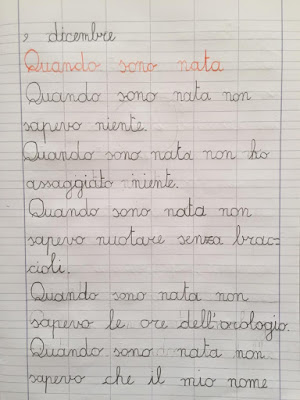 9 dicembre
Quando sono nata
Quando sono nata non
sapevo niente.
Quando sono nata non ho
assaggiato niente.
Quando sono nata non
sapevo nuotare senza brac=
cioli.
Quando sono nata non
sapevo le ore dell'orologio.
Quando sono nata non
sapevo che il mio nome